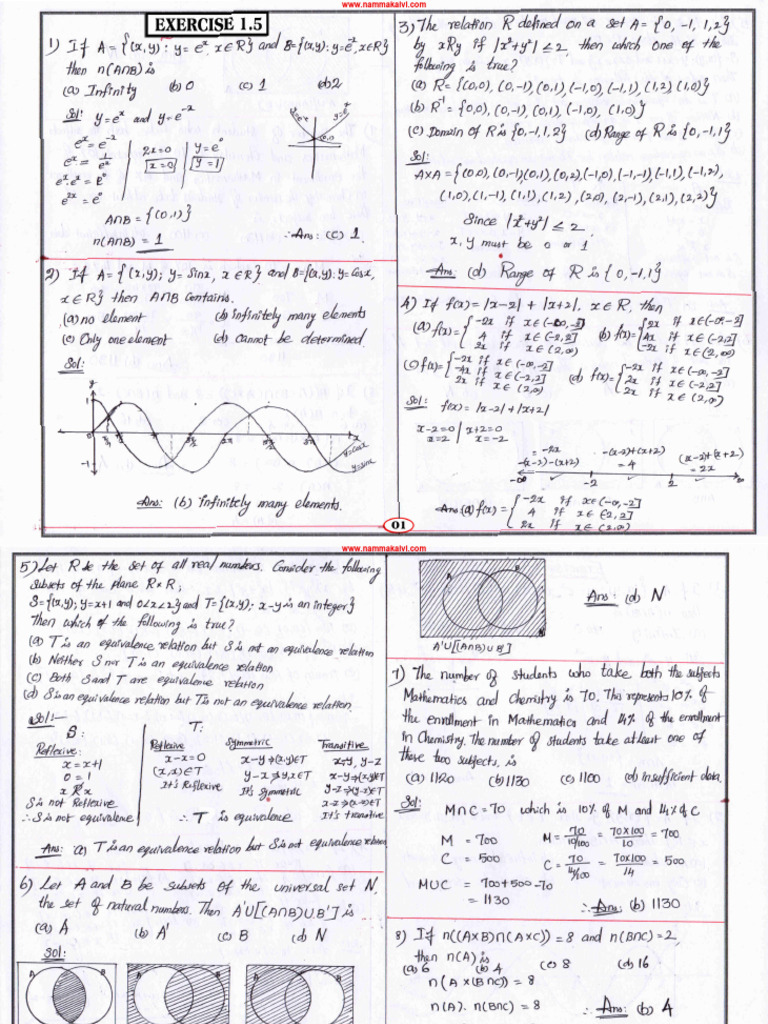 www.nammakalvi.com
EXERCISE 1.5
1) If A = {(x,y) : y = eˣ, x∈R} and B = {(x,y) : y = e⁻ˣ, x∈R}
then n(A∩B) is
(a) Infinity (b) 0 (c) 1 (d) 2
Sol: y = eˣ and y = e⁻ˣ
eˣ = e⁻ˣ
eˣ = 1/eˣ
eˣ.eˣ = e⁰
e²ˣ = e⁰
2x = 0
x = 0
y = e⁰
y = 1
A∩B = {(0,1)}
n(A∩B) = 1
∴ Ans: (c) 1
2) If A = {(x,y) : y = Sinx, x∈R} and B = {(x,y) : y = Cosx,
x∈R} then A∩B contains.
(a) no element (b) infinitely many elements
(c) Only one element (d) Cannot be determined.
Sol:
y
1
0
-1
x
y=cosx
y=sinx
Ans: (b) infinitely many elements.
3) The relation R defined on a set A = {0, -1, 1, 2}
by xRy if |x²+y²| ≤ 2, then which one of the
following is true?
(a) R = {(0,0), (0,-1), (0,1), (-1,0), (-1,1), (1,2) (1,0)}
(b) R⁻¹ = {(0,0), (0,-1), (0,1), (-1,0), (1,0)}
(c) Domain of R is {0,-1,1,2} (d) Range of R is {0,-1,1}
Sol:
A×A = {(0,0), (0,-1) (0,1), (0,2), (-1,0), (-1,-1), (-1,1), (-1,2),
(1,0), (1,-1), (1,1), (1,2), (2,0), (2,-1), (2,1), (2,2)}
Since |x²+y²| ≤ 2.
x, y must be 0 or 1.
Ans: (d) Range of R is {0,-1,1}
4) If f(x) = |x-2| + |x+2|, x∈R, then
(a) f(x) = { -2x if x∈(-∞,-2]
4 if x∈(-2,2]
2x if x∈(2,∞)
(b) f(x) = { 2x if x∈(-∞,-2]
4x if x∈(-2,2]
-2x if x∈(2,∞)
(c) f(x) = { -2x if x∈(-∞,-2]
-4x if x∈(-2,2]
2x if x∈(2,∞)
(d) f(x) = { -2x if x∈(-∞,-2]
2x if x∈(-2,2]
2x if x∈(2,∞)
Sol:
f(x) = |x-2| + |x+2|
x-2=0 | x+2=0
x=2 | x=-2
= -2x
-(x-2)-(x+2)
-(x-2)+(x+2)
= 4
(x-2)+(x+2)
= 2x
-∞ -2 2 ∞
Ans: (a) f(x) = { -2x if x∈(-∞,-2]
4 if x∈(-2,2]
2x if x∈(2,∞)
01
www.nammakalvi.com
5) Let R be the set of all real numbers. Consider the following
subsets of the plane R×R;
S = {(x,y) ; y = x+1 and 0<x<2} and T = {(x,y) ; x-y is an integer}
Then which of the following is true?
(a) T is an equivalence relation but S is not an equivalence relation
(b) Neither S nor T is an equivalence relation
(c) Both S and T are equivalence relation
(d) S is an equivalence relation but T is not an equivalence relation.
Sol:-
S:
Reflexive:
x = x+1
0 = 1
S is not Reflexive
∴ S is not equivalence
T:
Reflexive
x-x=0
(x,x)∈T
It's Reflexive
Symmetric
x-y⇒(x,y)∈T
y-x⇒(y,x)∈T
It's Symmetric
Transitive
x-y, y-z
x-y⇒(x,y)∈T
y-z⇒(y-z)∈T
It's transitive
∴ T is equivalence
Ans: (a) T is an equivalence relation but S is not equivalence relation
6) Let A and B be subsets of the universal set N,
the set of natural numbers. Then A'∪[(A∩B)∪B'] is
(a) A (b) A' (c) B (d) N
Sol:
A B
A B
A B
A B
A'∪[(A∩B)∪B']
Ans: (d) N
7) The number of students who take both the subjects
Mathematics and Chemistry is 70. This represents 10% of
the enrollment in Mathematics and 14% of the enrollment
in Chemistry. The number of students take at least one of
these two subjects, is
(a) 1120 (b) 1130 (c) 1100 (d) insufficient data.
Sol:
M∩C = 70 which is 10% of M and 14% of C
M = 700
C = 500
M = 70/(10/100) = 70×100/10 = 700
C = 70/(14/100) = 70×100/14 = 500
M∪C = 700+500-70
= 1130
∴ Ans: (b) 1130
8) If n((A×B)∩(A×C)) = 8 and n(B∩C) = 2,
then n(A) is
(a) 6 (b) 4 (c) 8 (d) 16
n(A×(B∩C)) = 8
n(A). n(B∩C) = 8
∴ Ans: (b) 4